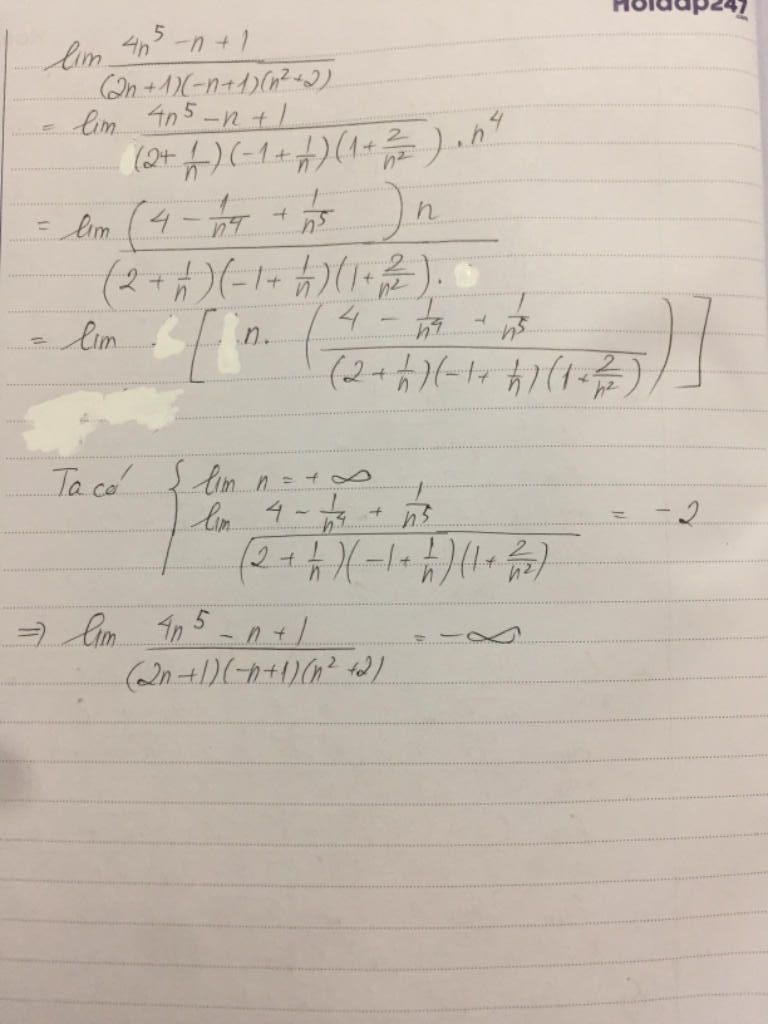 Hoidap247
.com
lim (4n⁵ - n + 1)/((2n+1)(-n+1)(n²+2))
= lim (4n⁵ - n + 1)/((2+1/n)(-1+1/n)(1+2/n²).n⁴)
= lim ((4 - 1/n⁴ + 1/n⁵)n)/((2+1/n)(-1+1/n)(1+2/n²).)
= lim [n.((4 - 1/n⁴ + 1/n⁵)/((2+1/n)(-1+1/n)(1+2/n²)))]
Ta có { lim n = +∞
lim (4 - 1/n⁴ + 1/n⁵)/((2+1/n)(-1+1/n)(1+2/n²)) = -2
⇒ lim (4n⁵ - n + 1)/((2n+1)(-n+1)(n²+2)) = -∞